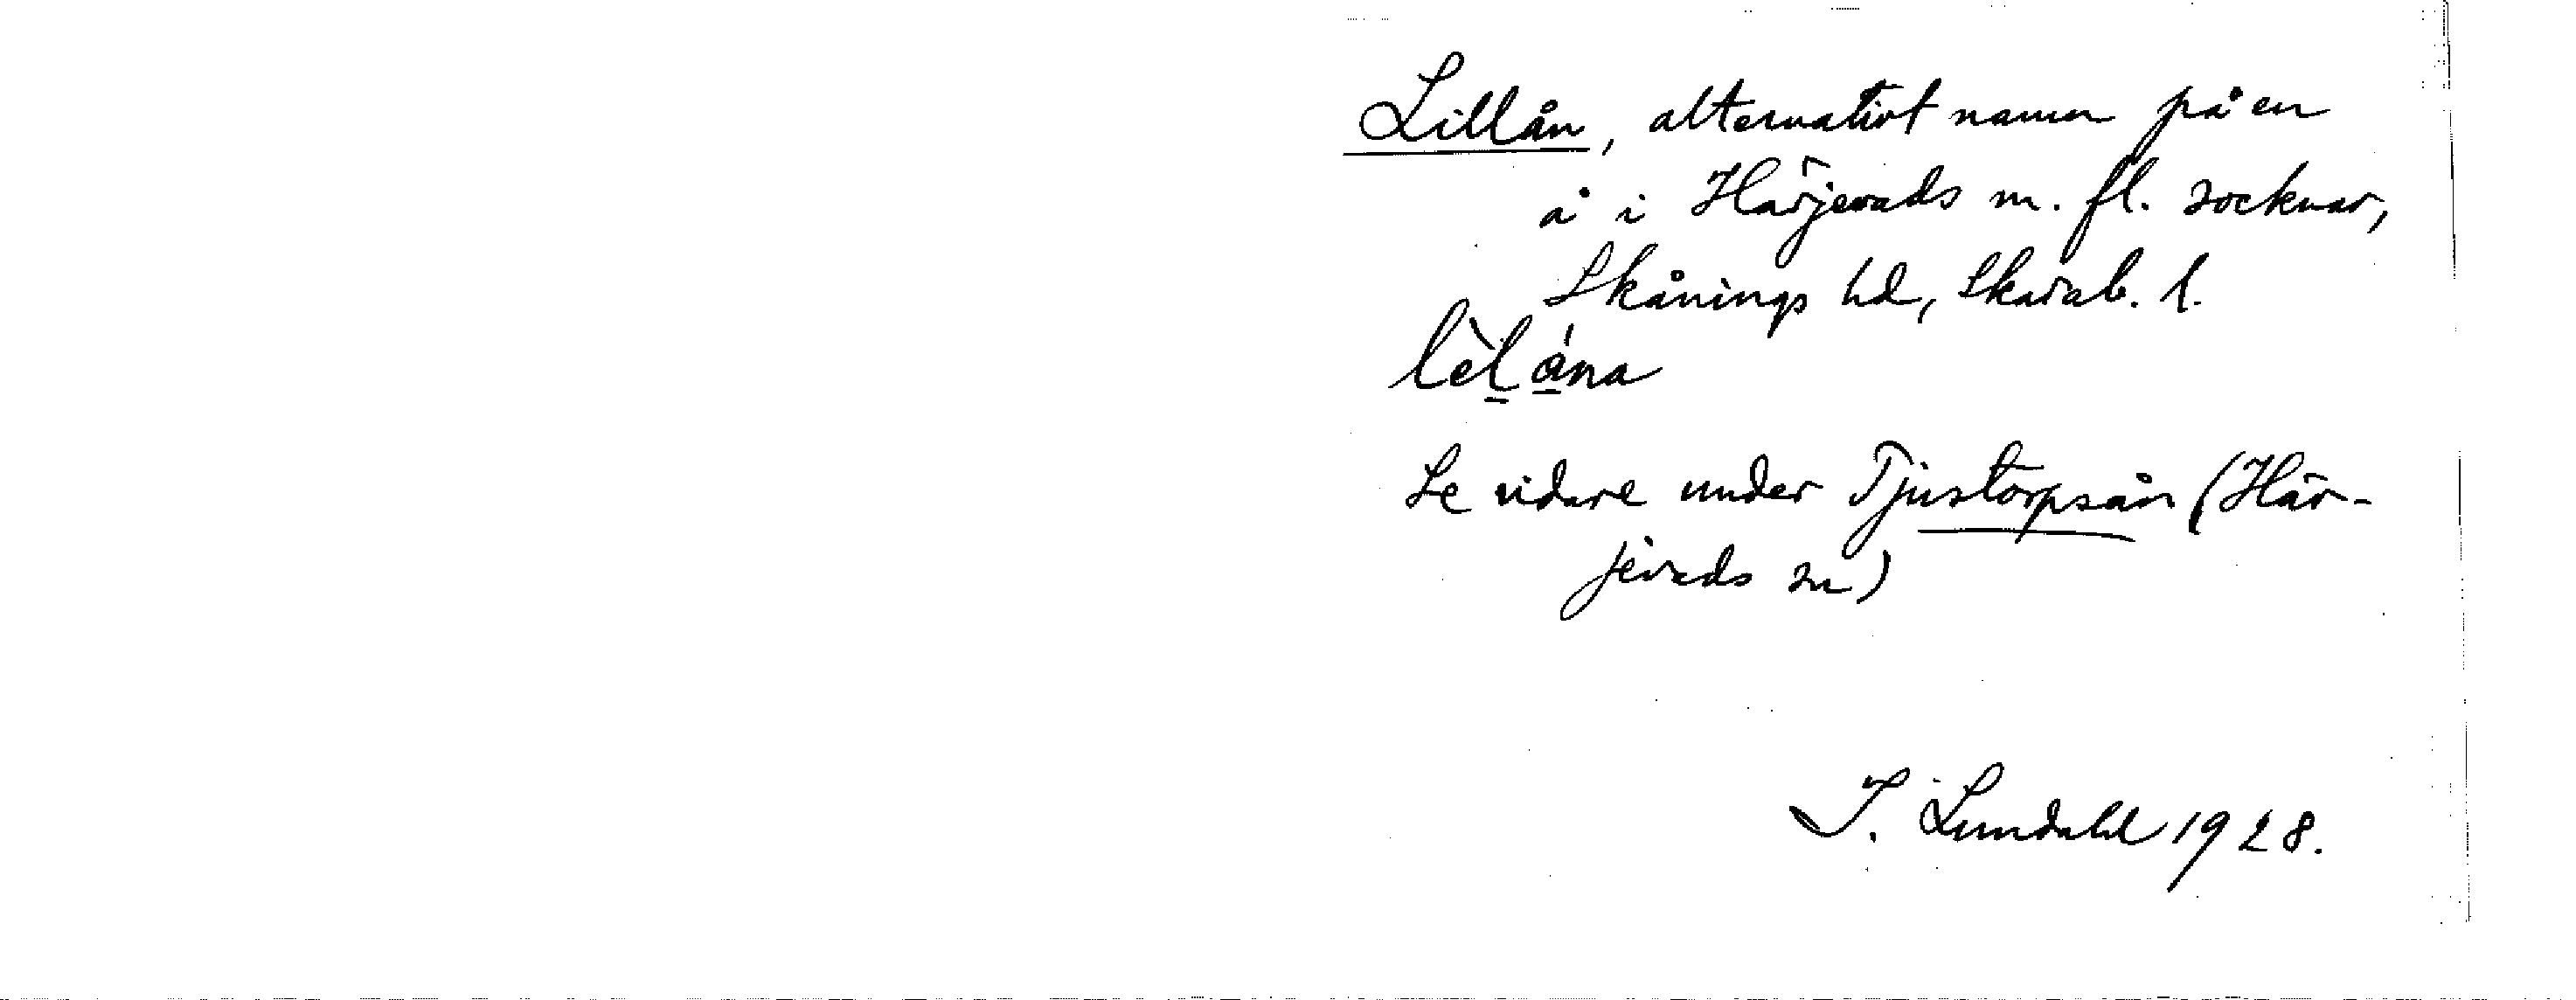 Lillån, alternativt namn på en
å i Härjevads m. fl. socknar,
Skånings hd, Skarab. l.
lèl ána
Se vidare under Tjustorpsån (Här-
jevads sn)
I. Lundahl 1928.